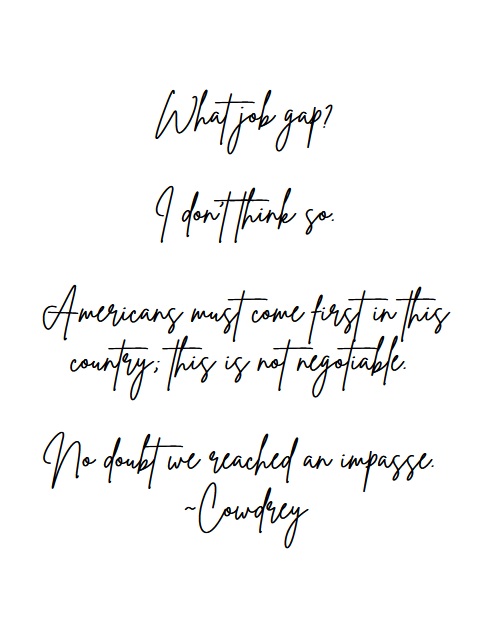 What job gap?
I don't think so.
Americans must come first in this
country; this is not negotiable.
No doubt we reached an impasse.
~Cowdrey